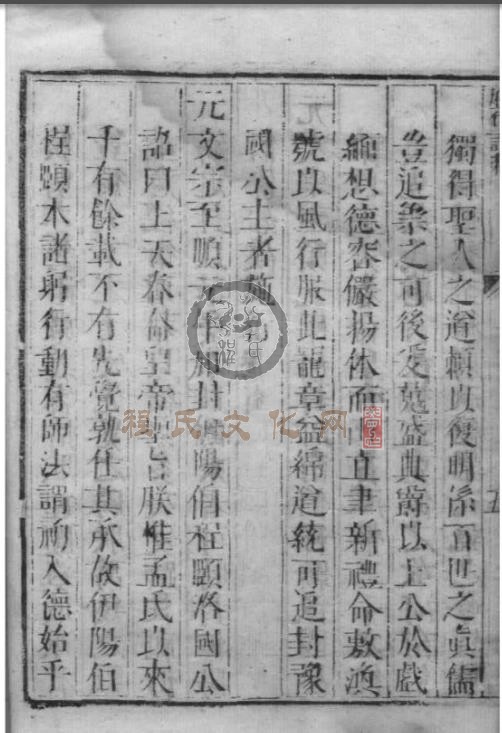 獨得聖人之道賴以復明係百世之眞儒
豈追崇之可後爰蒐盛典爵以上公於戲
緬想德容儼揚休而山立直聿新禮命敷渙
號以風行服此龍章益綿道統可追封豫
國公主者施
元文宗至順元年加封 陽伯程頤洛國公
詔曰上天眷命皇帝聖旨朕惟孟氏以來
千有餘載不有先覺孰任其承故伊陽伯
程頤本諸躬行動有師法謂初入德始乎
程氏文化网